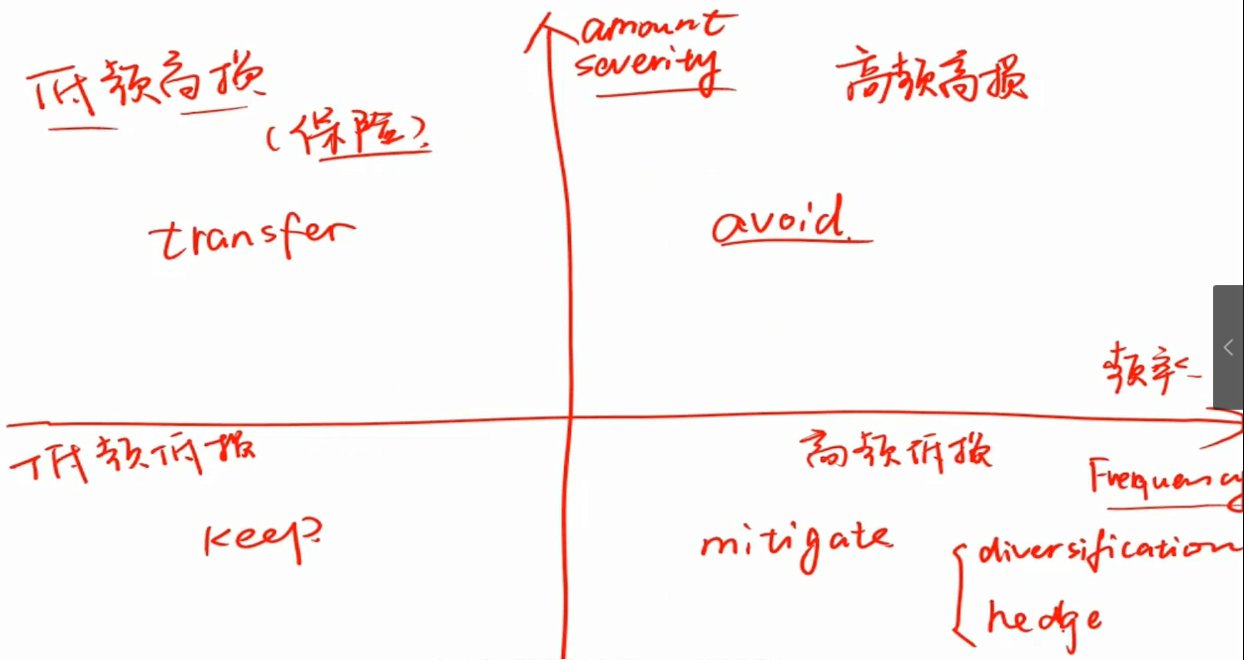 amount
severity
低频高损
(保险)
高频高损
transfer
avoid.
频率
低频低损
高频低损
Frequency
keep
mitigate
diversification
hedge